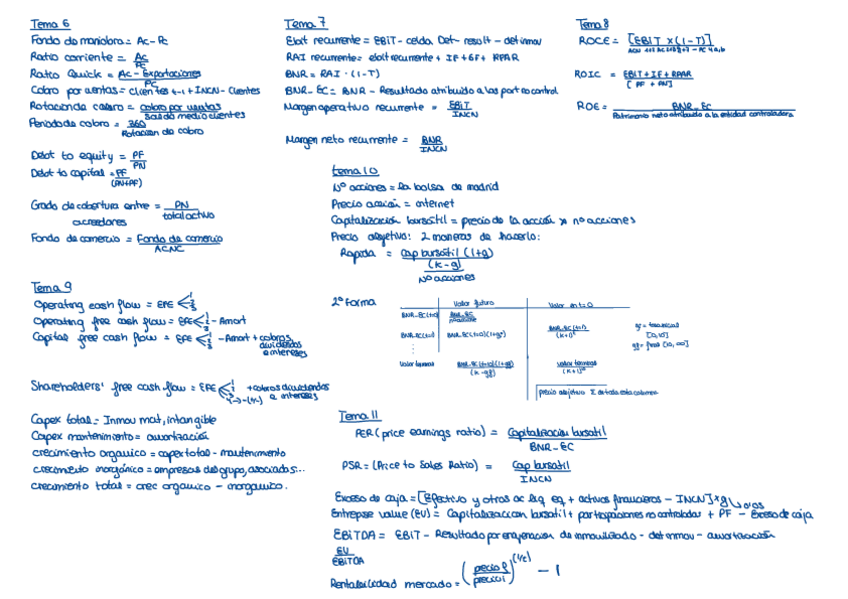 Tema 6
Fondo de maniobra = Ac - Pc
Ratio corriente = Ac / Pc
Ratio Quick = Ac - Exportaciones / PC
Cobro por ventas = Clientes t-1 + INCN - Clientes
Rotacion de cobro = cobro por ventas / Saldo medio clientes
Periodo de cobro = 360 / Rotacion de cobro
Debt to equity = PF / PN
Debt to capital = PF / (PN+PF)
Grado de cobertura entre acreedores = PN / total activo
Fondo de comercio = Fondo de comercio / ACNC
Tema 7
Ebit recurrente = EBIT - celda. Det - result - det inmov
RAI recurrente = ebit recurrente + IF + GF + RPAR
BNR = RAI · (1-T)
BNR-EC = BNR - Resultado atribuido a las part no control
Margen operativo recurrente = EBIT / INCN
Margen neto recurrente = BNR / INCN
Tema 8
ROCE = [EBIT x (1-T)]
ROIC = EBIT + IF + RPAR / [PF + PN]
ROE = BNR-EC / Patrimonio neto atribuido a la entidad controladora
Tema 9
Operating cash flow = EFE < 1 2 3
Operating free cash flow = EFE < 1 2 3 - Amort
Capital free cash flow = EFE < 1 2 3 - Amort + cobros dividendos e intereses
Shareholders' free cash flow = EFE + cobros dividendos e intereses
Capex total = Inmov mat, intangible
Capex mantenimiento = amortización
crecimiento organico = capex total - mantenimiento
crecimiento inorgánico = empresas del grupo, asociadas...
crecimiento total = crec organico - inorganico.
tema 10
Nº acciones = la bolsa de madrid
Precio acción = internet
Capitalización bursátil = precio de la acción x nº acciones
Precio objetivo: 2 maneras de hacerlo:
Rapida = cap bursátil (1+g) / (k-g) / Nº acciones
2ª forma
Valor futuro
Valor en t=0
BNR-EC (t=0)
BNR-EC
BNR-EC (t=1)
BNR-EC (t=0) (1+g)
BNR-EC (t=1) / (k+1)
Valor terminal
valor terminal
precio objetivo Σ de toda esta columna
Tema 11
PER (price earnings ratio) = Capitalización bursatil / BNR-EC
PSR = (Price to Sales Ratio) = Cap bursatil / INCN
Exceso de caja = [Efectivo y otros ac liq eq + activos financieros - INCN] x %
Enterprise value (EV) = Capitalizaccion bursatil + participaciones no controladas + PF - Exceso de caja
EBITDA = EBIT - Resultado por enajenacion de inmovilizado - det inmov - amortización
EV / EBITDA
Rentabilidad mercado = (precio f / precio i)^(1/t) - 1